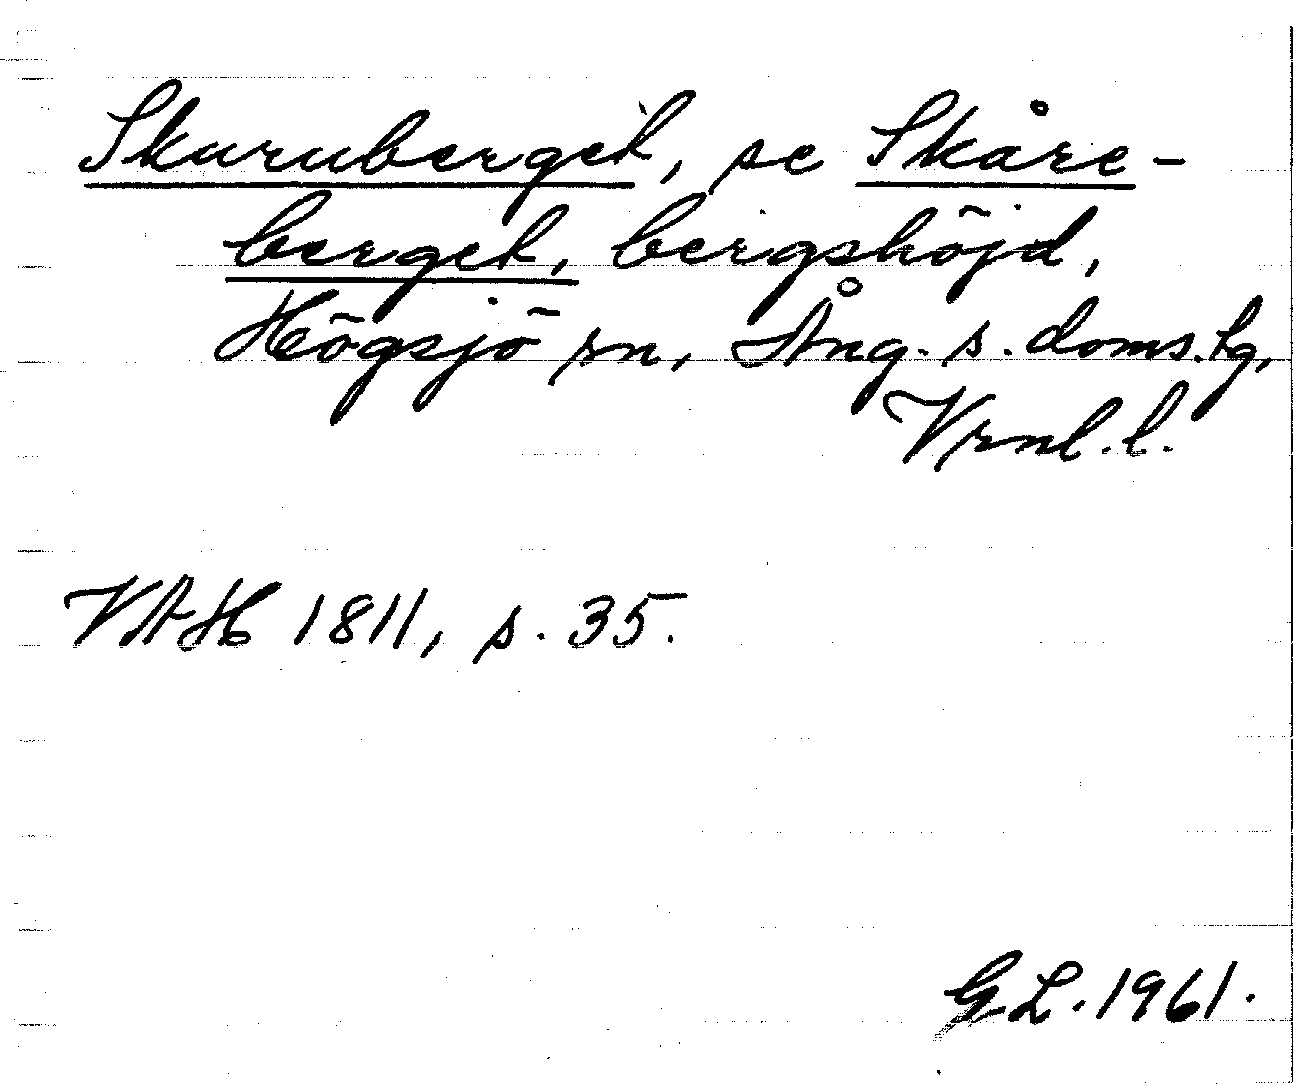 Skuruberget, se Skåre-
berget, bergshöjd,
Högsjö sn, Ång. s. doms.tg,
Vrnl. l.
VAH 1811, s. 35.
G.L. 1961.